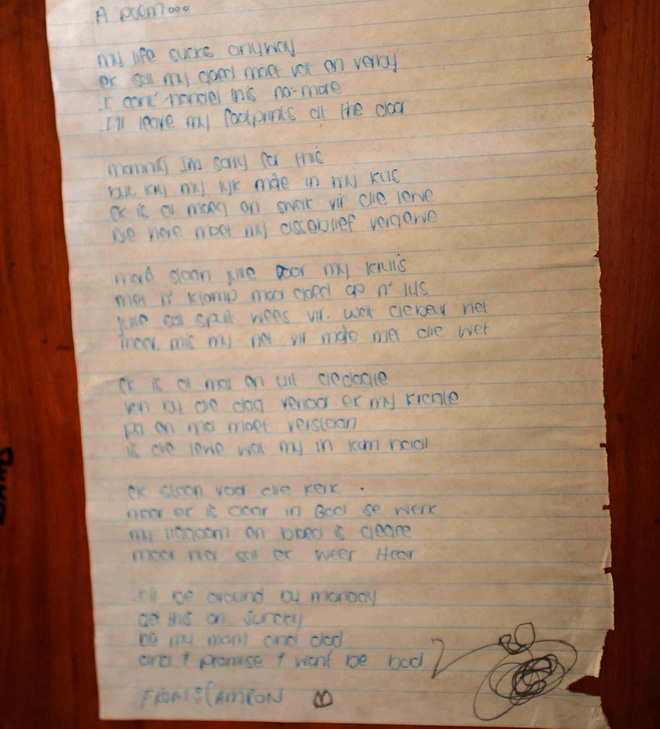 A poem...
my life sucks anyway
ek sal my goed moet vat en verby
I cant' handel this no-more
I'll leave my footprints at the door
mammy Im sorry for this
but, kry my lyk in my kus
ek is al moeg en swak vir die lewe
Die here moet my asseblief vergewe
staan julle door my kruis
met n' klomp maar op n' lus
julle sal spuit wees vir. wat net
maar, mis my net vir met die wet
ek is al moeg en uit
en by die dag verloor ek my kragte
pa en ma moet verstaan
is die lewe wat my in kom haal
ek staan voor die kerk.
maar ek is daar in God se werk
my liggaam en is
maar hier sal ek weer Heer
I'll be around by monday
get this on Sunday
be my mom and dad
and I promise I wont be bad
FROM: CAMRON B